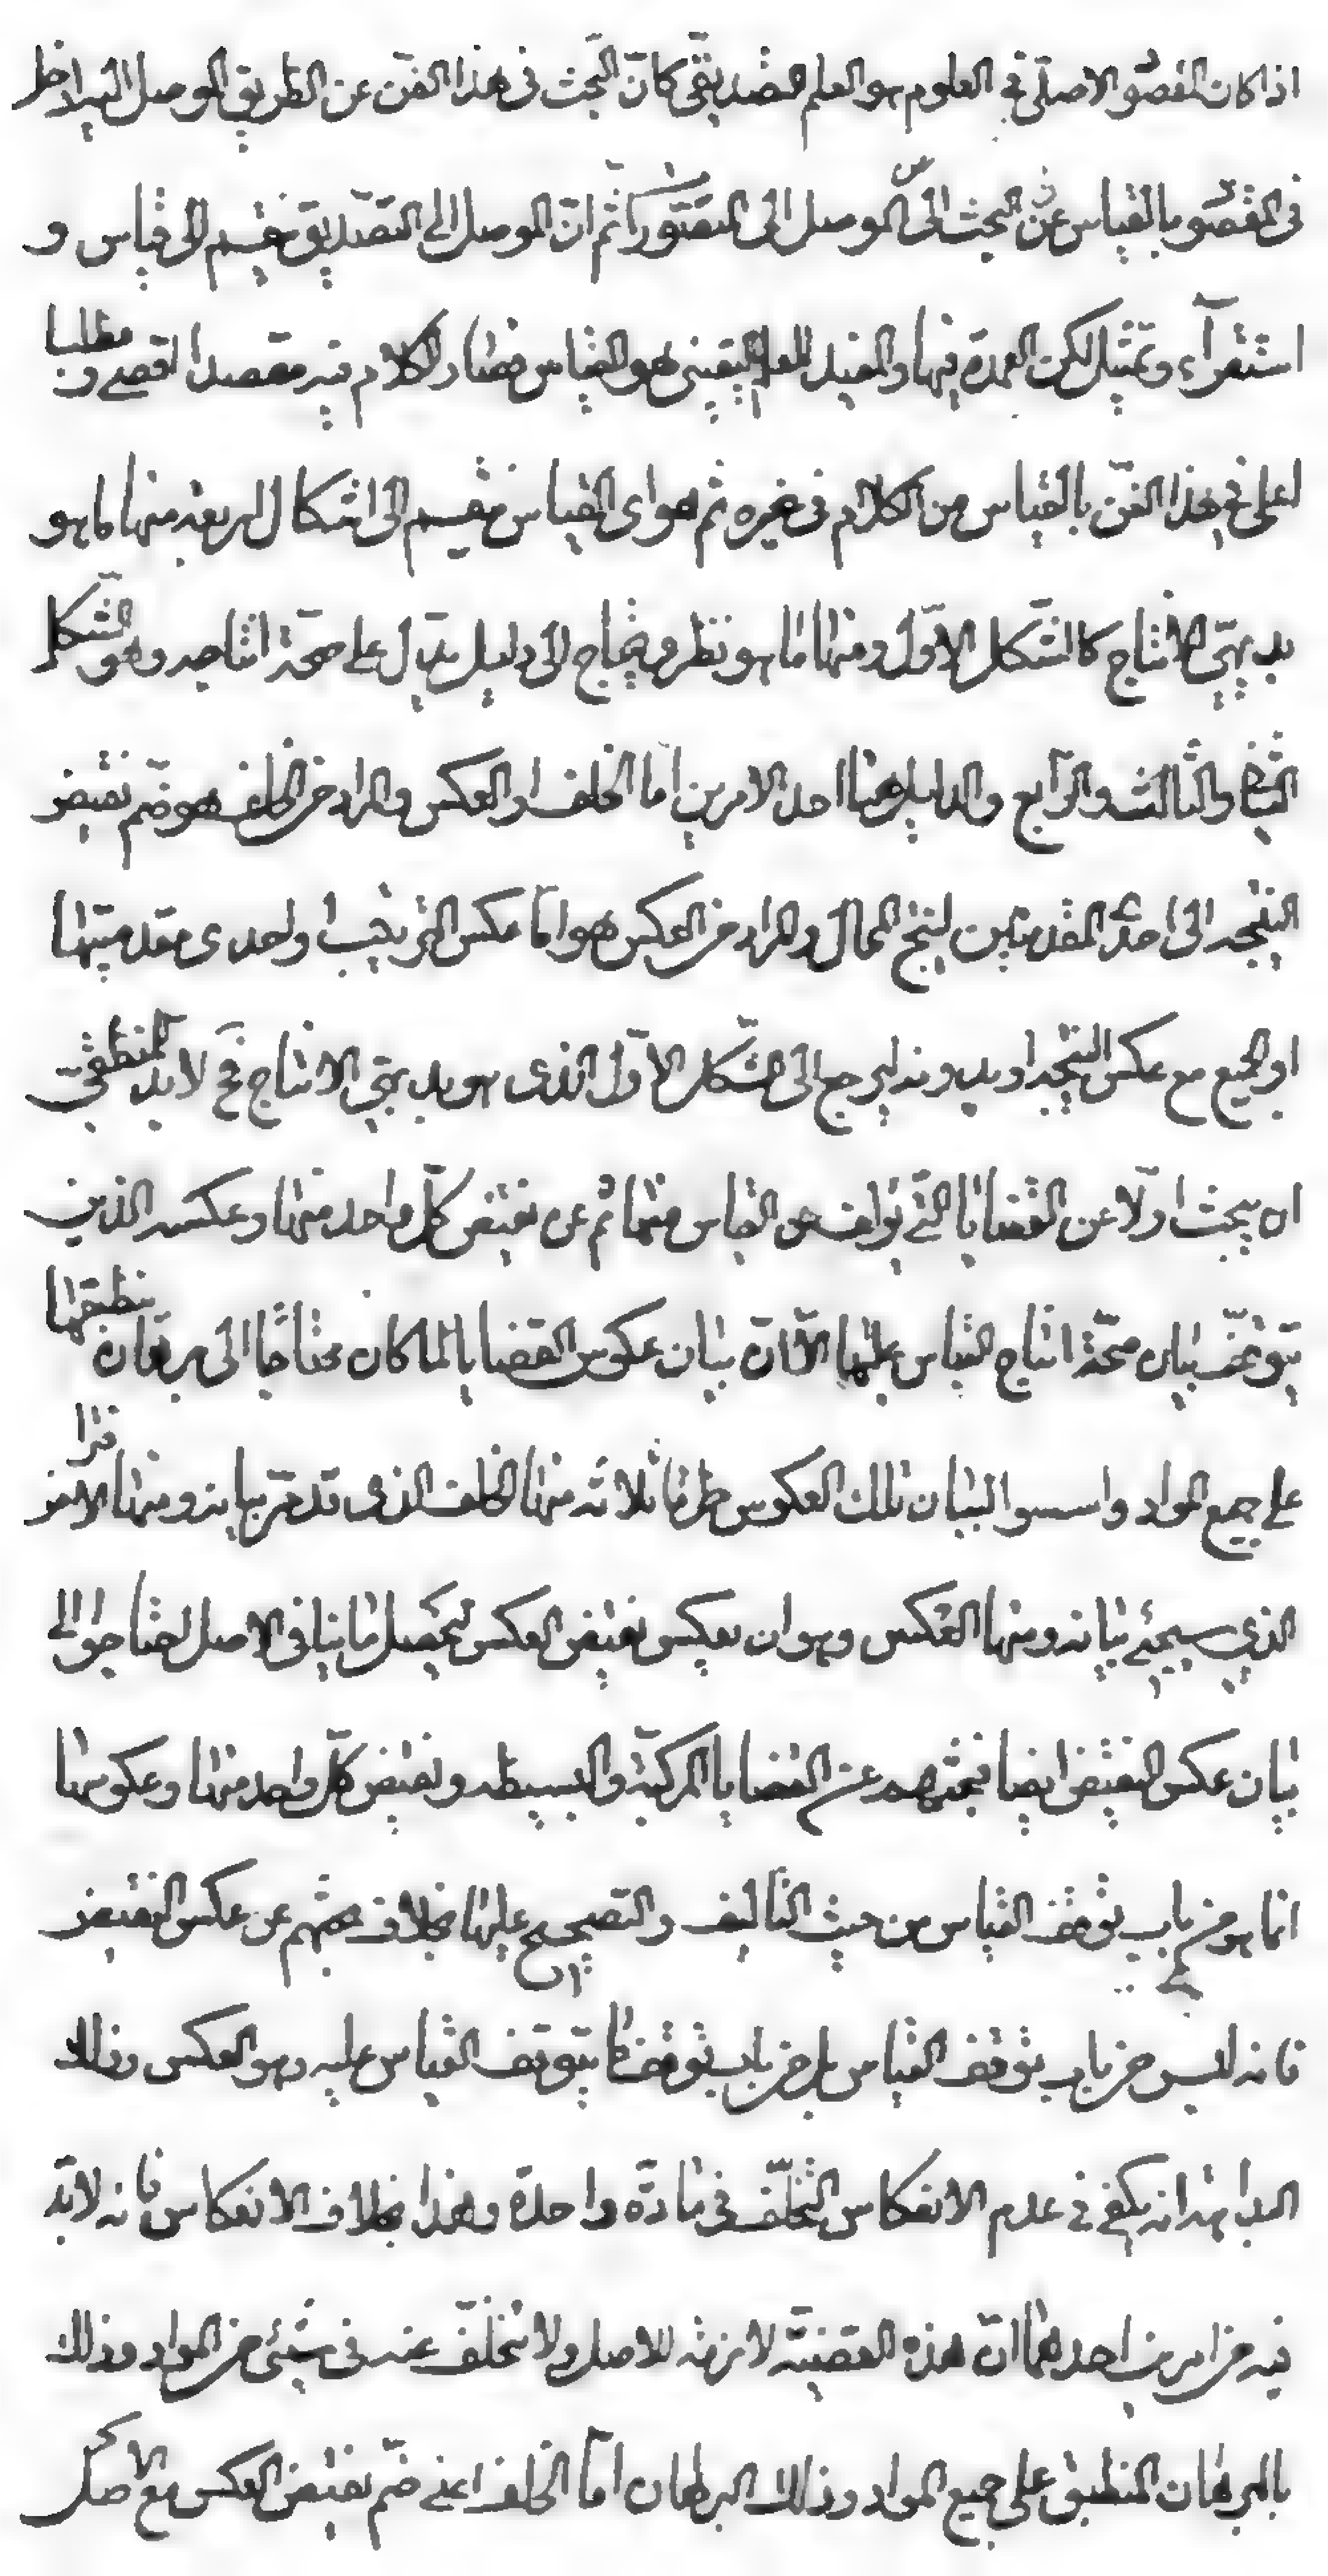 اذا كان المقصو الاصلي في العلوم هو العلم التصديقي كان البحث في هذا الفن عن الطريق الموصل اليه ادخل
في المقصو بالقياس عن البحث الى الموصل الى التصور ثم ان الموصل الى التصديق ينقسم الى قياس و
استقرآء وتمثيل لكن العمدة فيها والمفيد للعلم اليقيني هو القياس فصار الكلام فيه مقصدا اقصى و مطلبا
اعلى في هذا الفن بالقياس من الكلام في غيره ثم هو اى القياس منقسم الى اشكال اربعة منها ما هو
بديهي الانتاج كالشكل الاول ومنها ما هو نظرى يحتاج الى دليل يدل على صحة انتاجه وهو الشكل
الثاني والثالث والرابع والدليل هنا احد الامرين اما الخلف او العكس والمراد من الخلف هو ضم نقيض
النتيجه الى احدى المقدمتين لينتج المحال والمراد من العكس هو اما عكس الترتيب او احدى مقدمتيها
او الجميع مع عكس النتيجه او بدونه ليرجع الى الشكل الاول الذى هو بديهي الانتاج فح لابد للمنطقي
ان يبحث اولا عن القضايا التي يؤلف عن القياس منها ثم عن نقيض كل واحد منها وعكسه الذين
يتوقف بيان صحة انتاج القياس عليها الا ان بيان عكوس القضايا لما كان محتاجا الى برهان منطبقها
على جميع المواد واسسوا لبيان تلك العكوس طرقا ثلاثه منها الخلف الذى قد مر بيانه ومنها الافترا
الذي سيجيئ بيانه ومنها العكس وهو ان يعكس نقيض العكس ليحصل ما ينافي الاصل احتاجوا الى
بيان عكس النقيض ايضا فبحثهم عن القضايا المركبة والبسيطه ونقيض كل واحد منها وعكوسها
انما هو من باب توقف القياس من حيث التأليف والتصحيح عليها بخلاف بحثهم عن عكس النقيض
فانه ليس من باب توقف القياس بل من باب توقف ما يتوقف القياس عليه وهو العكس وذلك
انه يكفي في عدم الانعكاس التخلف في مادة واحدة وهذا بخلاف الانعكاس فانه لابد
فيه من امرين احدهما ان هذه القضية لازمة للاصل ولا تتخلف عنه في شيئ من المواد وذلك
بالبرهان المنطبق على جميع المواد وذلك البرهان اما الخلف اعني ضم نقيض العكس مع الاصل